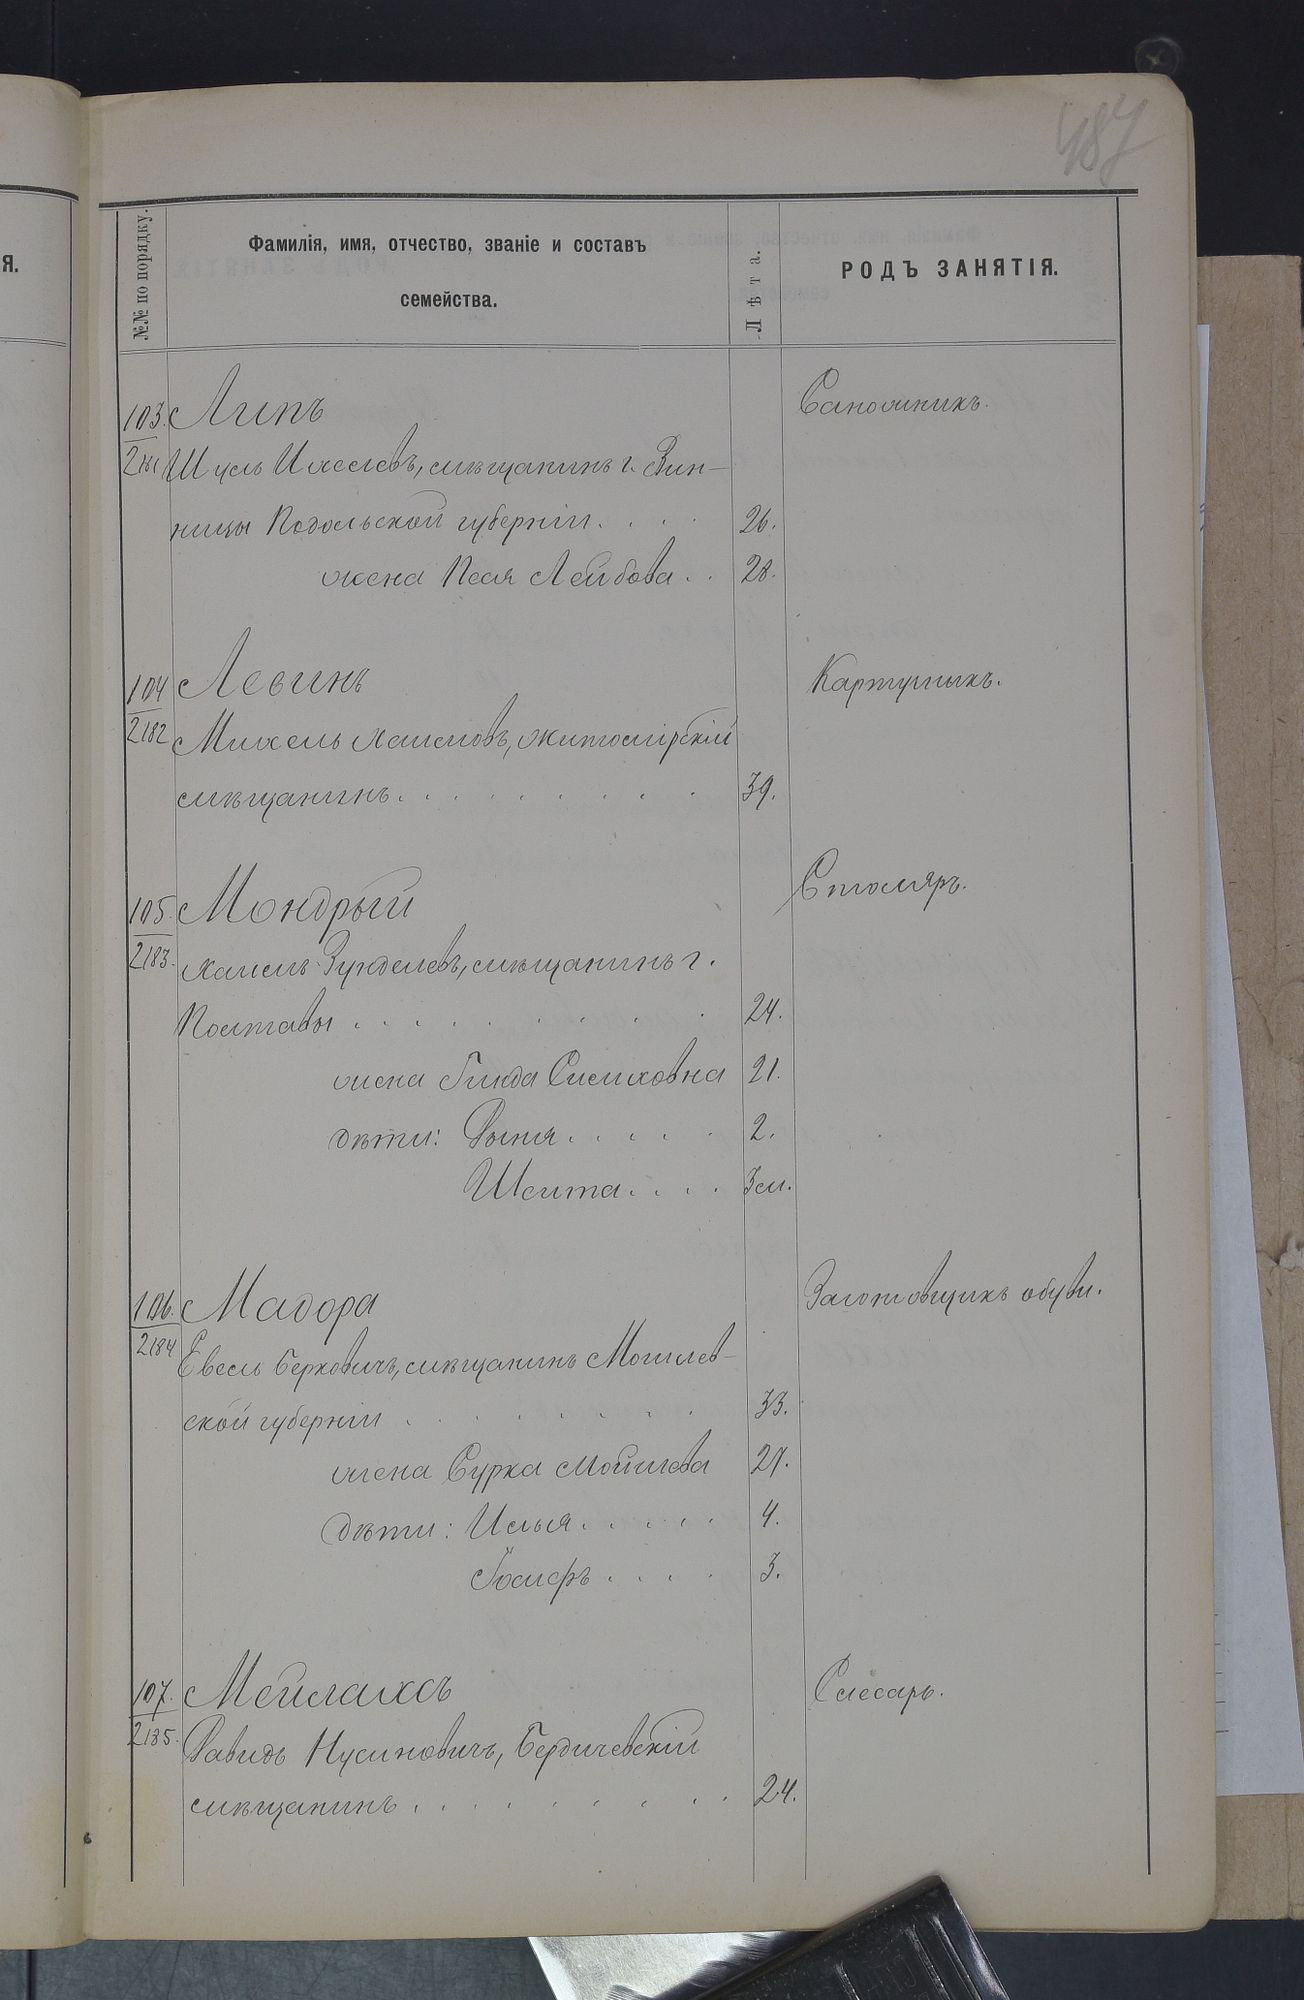 487
Я.
№№ по порядку.
Фамилія, имя, отчество, званіе и составъ
семейства.
Лѣта.
РОДЪ ЗАНЯТІЯ.
103. Липъ Сапожникъ.
2181 Шуель мѣщанинъ г. Вин-
ницы Подольской губерніи. . . . 26.
жена Песя Лейбова. . 28.
104 Левинъ Картузникъ.
2182 Михель Хаимовъ, житомірскій
мѣщанинъ. . . . . . . . . 39.
105. Мондрый Столяръ.
2183. Хаимъ Зунделевъ, мѣщанинъ г.
Полтавы . . . . . . . . . 24.
жена Гинда Симховна 21.
дѣти: Роня . . . . . 2.
Шейта. . . . 3 м.
106. Мадора Заготовщикъ обуви.
2184 Евель Берковичъ, мѣщанинъ Могилев-
ской губерніи . . . . . . . . 33.
жена Сурка Мошева 27.
дѣти: Илья . . . . . 4.
Іосифъ . . . . 3.
107. Мейлахсъ Слесарь.
2185. Давидъ Нусиновичъ, Бердичевскій
мѣщанинъ . . . . . . . . . 24.